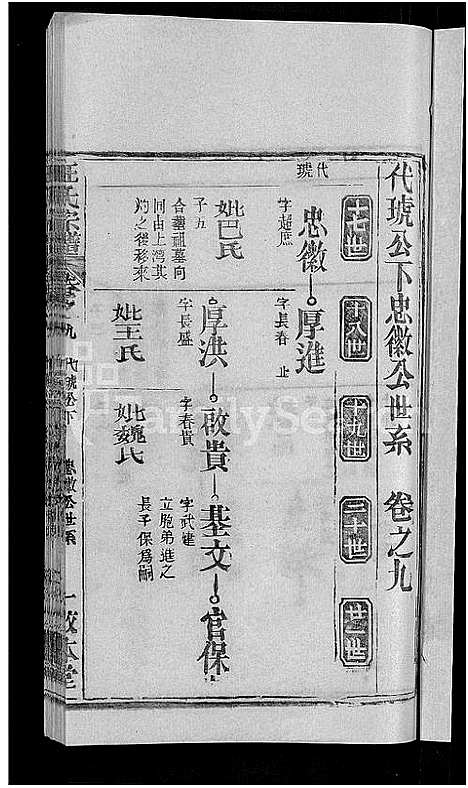 代琥公下忠徽公世系 卷之九
十七世 十八世 十九世 二十世 廿一世
代琥
忠徽 厚進
字超庶
字長春 止
妣巴氏
子五
合墓祖墓向
同由上湾其
灼之後移來
厚洪 啟貴 基文 官保
字長盛
字春貴
字武建
立胞弟進之
長子保爲嗣
妣王氏
妣魏氏
汪氏宗譜 卷之九 代琥公下 忠徽公世系 敦本堂
FamilySearch